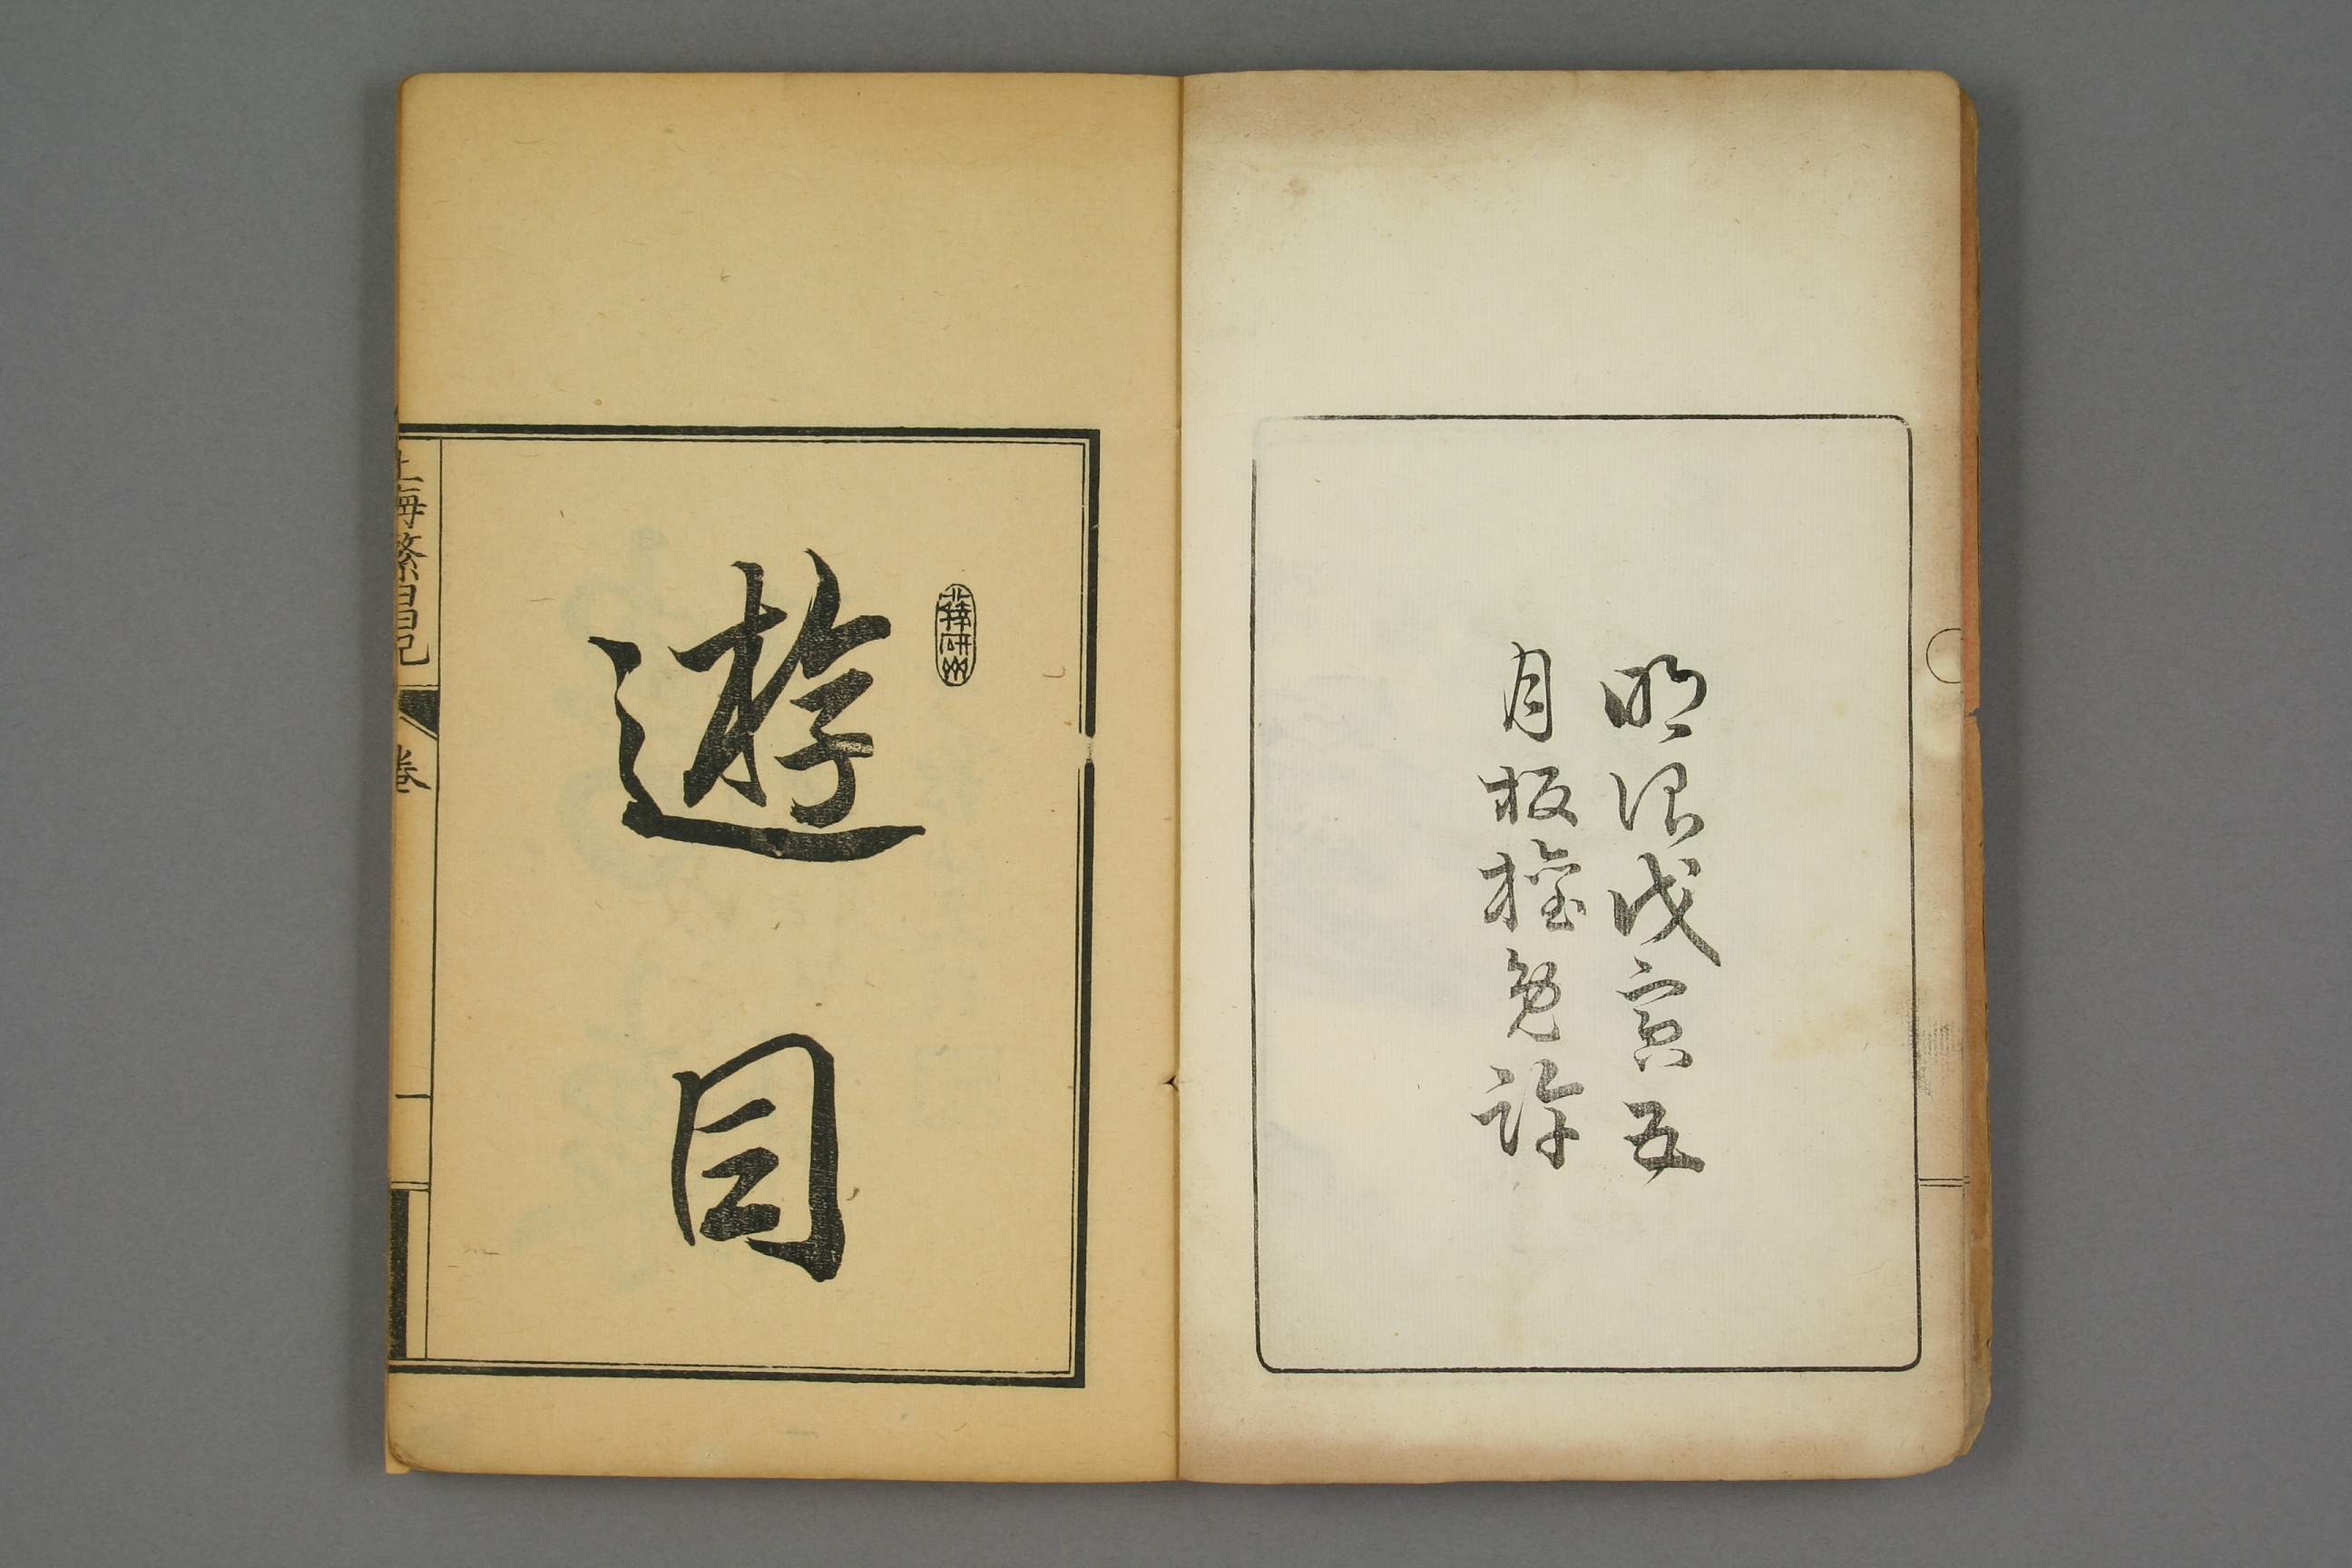 明治戊寅五
月板權免許
遊目
上海繁昌記
卷
一